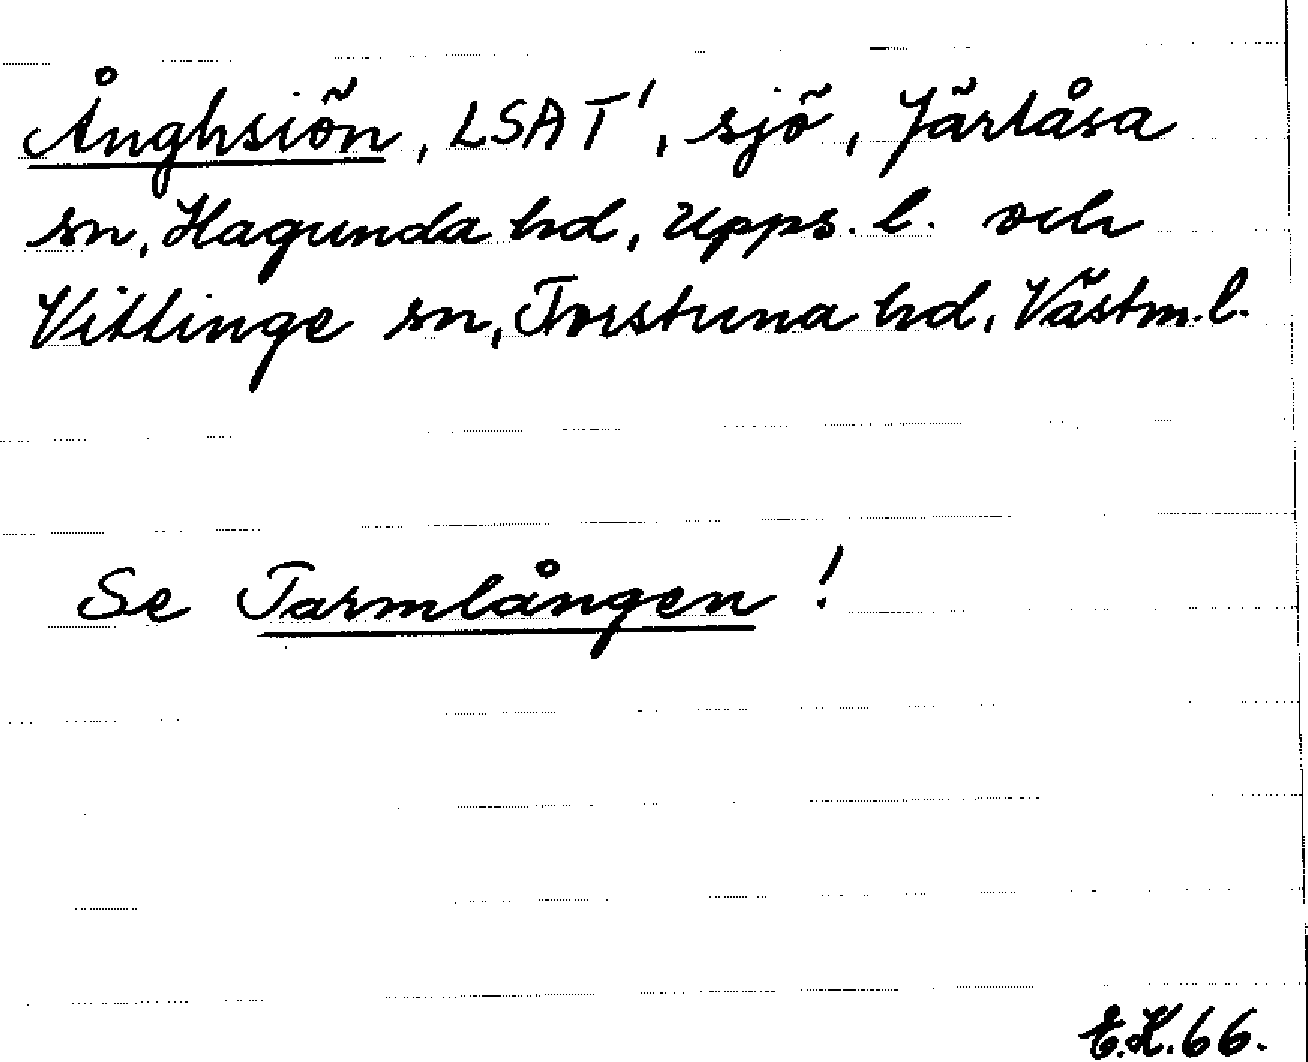 Ånghsiön, LSAT', sjö, Järlåsa
sn, Hagunda hd, Upps. l. och
Vittinge sn, Torstuna hd, Västm. l.
Se Tarmlången!
E.H.66.